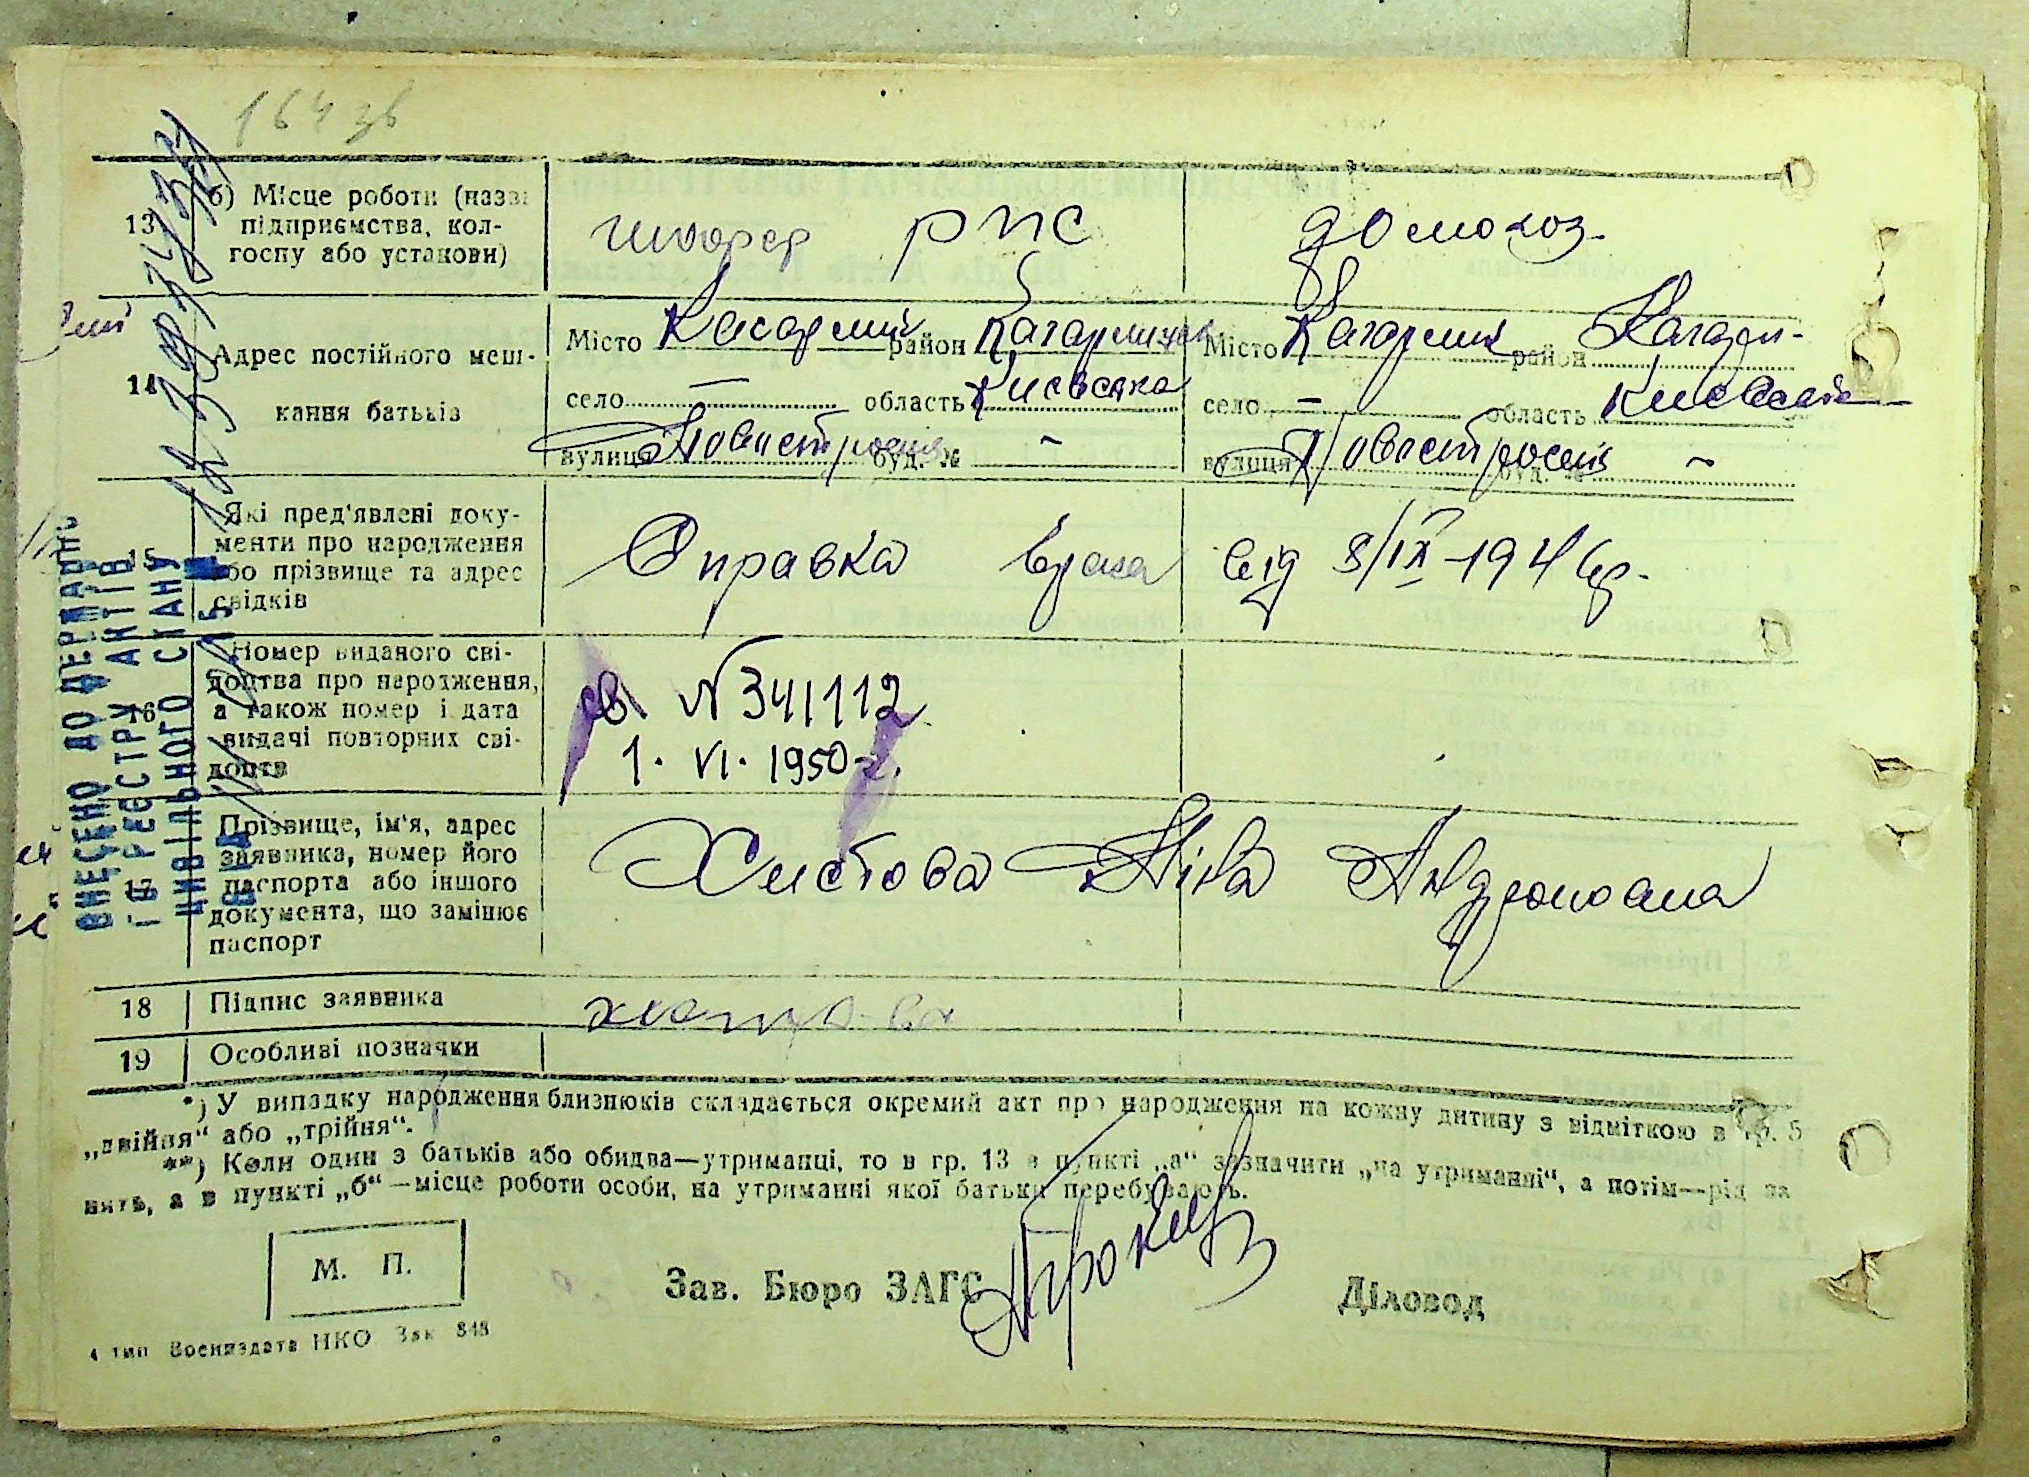 164 зв
13 б) Місце роботи (назва
підприємства, кол-
госпу або установи)
шофер РПС
домохоз.
14 Адрес постійного меш-
кання батьків
Місто Кагарлик район Кагарлицьк
село — область Киевська
вулиця Новостроєнія буд. № –
Місто Кагарлик район Кагарл-
село – область Киевська
вулиця Новостроєнія буд. № –
15 Які пред'явлені доку-
менти про народження
або прізвище та адрес
свідків
Справка врача від 8/IX-194 р.
16 Номер виданого сві-
доцтва про народження,
а також номер і дата
видачі повторних сві-
доцтв
св. № 341112
1. VI. 1950 г.
17 Прізвище, ім'я, адрес
заявника, номер його
паспорта або іншого
документа, що замінює
паспорт
Хистова Ніна
18 Підпис заявника
19 Особливі позначки
*) У випадку народження близнюків складається окремий акт про народження на кожну дитину з відміткою в гр. 5
„двійня“ або „трійня“.
**) Коли один з батьків або обидва—утриманці, то в гр. 13 в пункті „а“ зазначити „на утриманні“, а потім—рід за
нять, а в пункті „б“—місце роботи особи, на утриманні якої батьки перебувають.
М. П.
Зав. Бюро ЗАГС
Діловод
4 тип Воениздата НКО Зак 848
ВНЕСЕНО ДО ДЕРЖАВНО
ГО РЕЄСТРУ АКТІВ
ЦИВІЛЬНОГО СТАНУ